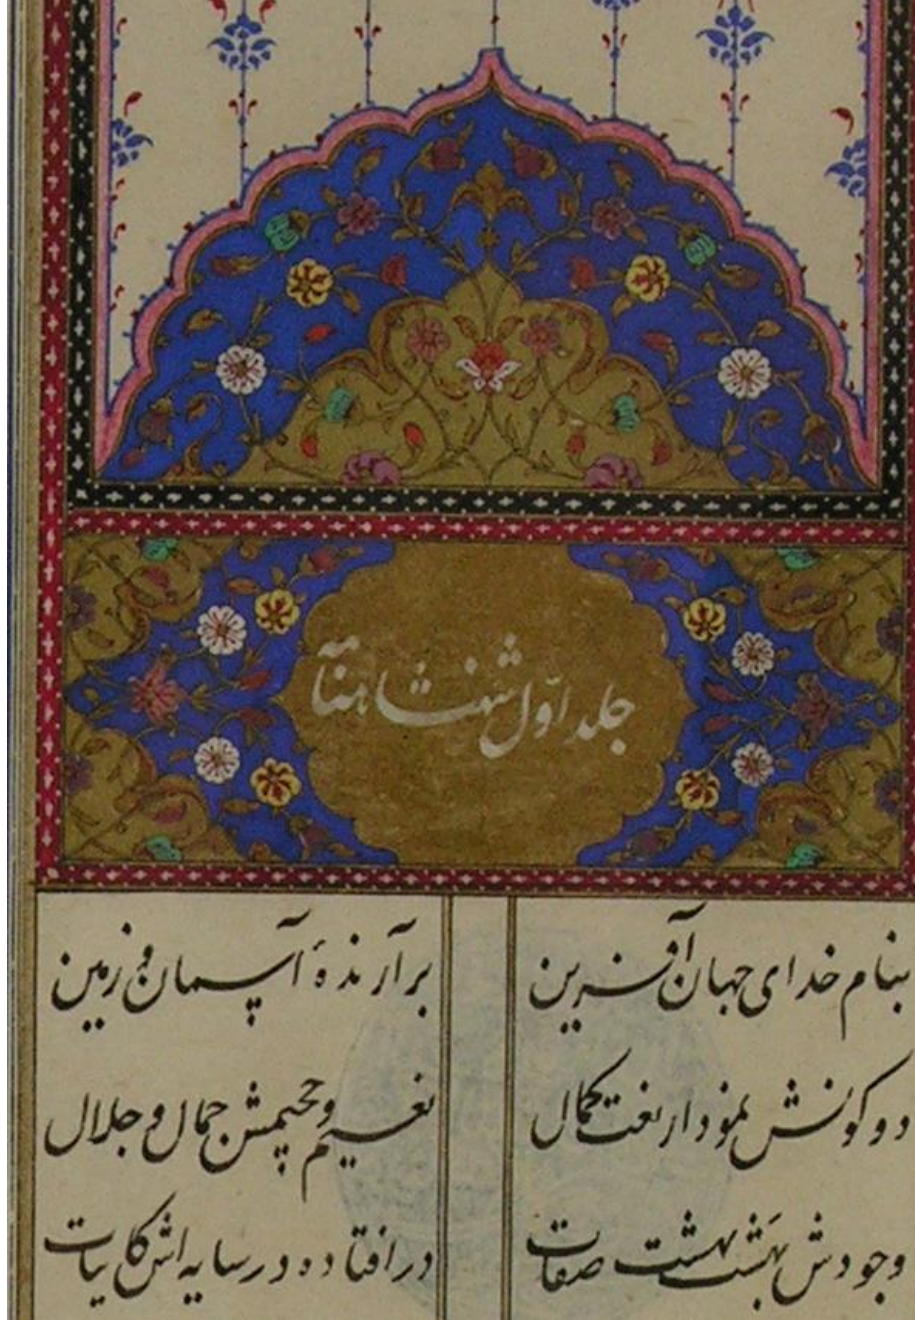 جلد اوّل شهنشاهنامه
بنام خدای جهان آفرین برآرندهٔ آسمان و زمین
دو کونش نمودار نعت کمال نعیم و جحیمش جمال و جلال
وجودش بهشت صفات در افتاده در سایه اش کاینات